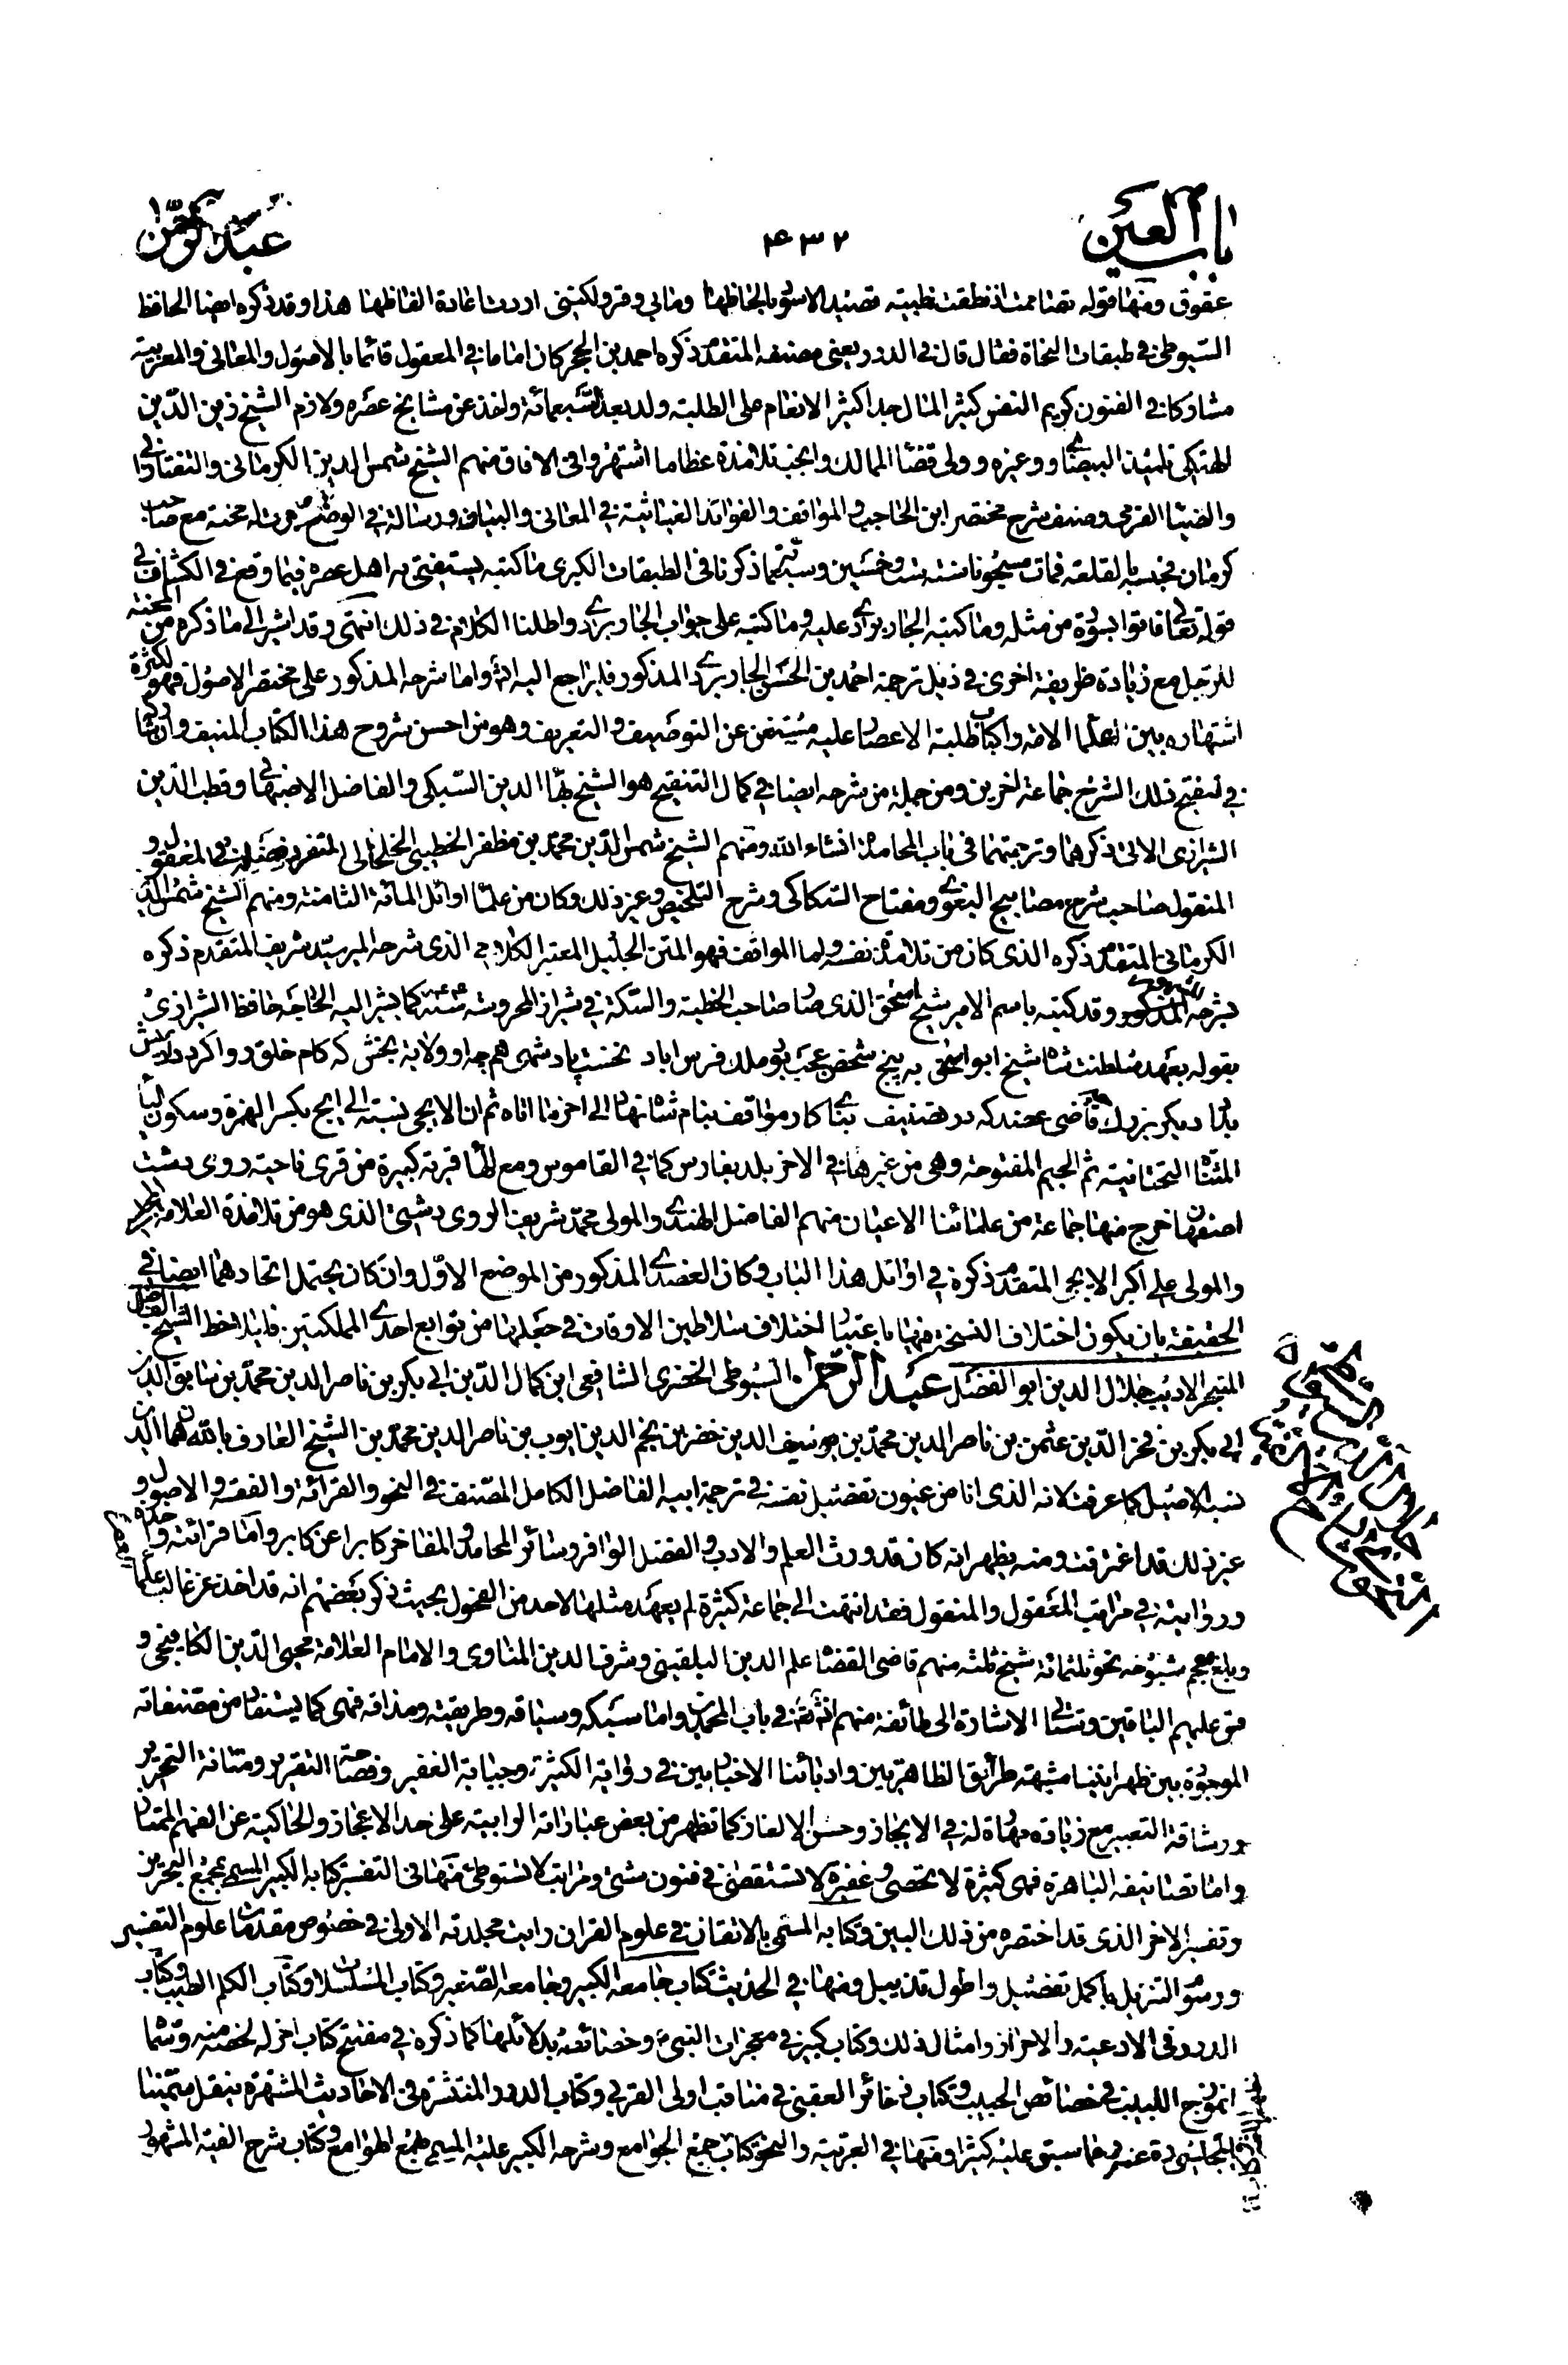 باب العين ۴۳۲ عبد الرحمن
عقوق ومنها قوله تضاممت اذ نطقت بظبيته تصيد الاسود بالحاظها وما بي وقر ولكننى اردت اعادة الفاظها هذا وقد ذكره ايضا الحافظ
السيوطى في طبقات النحاة فقال قال في الدرر يعنى مصنفه المتقدم ذكره احمد بن الحجر كان اماما في المعقول قائما بالاصول والمعانى والعربية
مشاركا في الفنون كريم النفس كثير المال جدا كثير الانعام على الطلبة ولد بعد السبعمائة واخذ عن مشايخ عصره ولازم الشيخ زين الدين
الهنكى تلميذ البيضاوى وغيره وولى قضا الممالك وانجب تلامذة عظاما اشتهروا في الافاق منهم الشيخ شمس الدين الكرمانى والتفتازانى
والضيا القرمى وصنف شرح مختصر ابن الحاجب والمواقف والفوائد الغياثية في المعانى والبيان ورسالة في الوضع جرت له محنة مع صاحب
كرمان فحبسه بالقلعة فمات مسجونا سنة ست وخمسين وسبعمائة ذكرنا في الطبقات الكبرى ما كتبه يستفتى به اهل عصره فيما وقع في الكشاف في
قوله تعالى فاتوا بسورة من مثله وما كتبه الجاربردى عليه وما كتبه على جواب الجاربردى واطلنا الكلام في ذلك انتهى وقد اشير الى ما ذكره من المحنة
للرجل مع زيادة طريفة اخرى في ذيل ترجمة احمد بن الحسن الجاربردى المذكور فليراجع اليه انشاء واما شرحه المذكور على مختصر الاصول فهو لكثرة
اشتهاره بين علما الامة واكباب طلبة الاعصار عليه مستغن عن التوصيف والتعريف وهو من احسن شروح هذا الكتاب المنيف وان شاركه
في تنقيح ذلك الشرح جماعة اخرين ومن جملة من شرحه ايضا في كمال التنقيح هو الشيخ بهاء الدين السبكى والفاضل الاصبهانى وقطب الدين
الشيرازى الاتى ذكرهما وترجمتهما في باب المحامدة انشاء الله ومنهم الشيخ شمس الدين محمد بن مظفر الخطيبى الخلخالى المتفرد بفضيلته في المعقول و
المنقول صاحب شرح مصابيح البغوى ومفتاح السكاكى وشرح التلخيص وغير ذلك وكان من علما اوائل المائة الثامنة ومنهم الشيخ شمس الدين
الكرمانى المتقدم ذكره الذى كان من تلامذة نفسه واما المواقف فهو المتن الجليل المعتبر الكلامى الذى شرحه المير سيد شريف المتقدم ذكره
بشرحه المذكور وقد كتبه باسم الامير شيخ ابو اسحق الذى صار صاحب الخطبة والسكة في شيراز المحروسة سنة كما يشير اليه الخاجه حافظ الشيرازى
بقوله بعهد سلطنت شاه شيخ ابو اسحق به پنج شخص عجب بود ملك فارس اباد نخست پادشهى همچو او ولايت بخش كه كام خلق روا كرد وداد عيش
بداد ديگر بزرگ قاضى عضد كه در تصنيف بناى كار مواقف بنام شاه نهاد الى اخر ما افاده ثم ان الايجى نسبته الى ايج بكسر الهمزة وسكون اليا
المثناة التحتانية ثم الجيم المفتوحة وهى من غيرها في الاخر بلد بفارس كما في القاموس ومع الها قرية كبيرة من قرى ناحية روى دشت
اصفهان خرج منها جماعة من علمائنا الاعيان منهم الفاضل الهندى والمولى محمد شريف الروى دشتى الذى هو من تلامذة العلامة
والمولى على اكبر الايجى المتقدم ذكره في اوائل هذا الباب وكان العضدى المذكور من الموضع الاول وان كان يحتمل اتحادهما ايضا في
الحقيقة بان يكون اختلاف النسخة فيها باعتبار اختلاف سلاطين الاوقات في جعلها من توابع احدى المملكتين فليلاحظ الشيخ الفاضل
المتبحر الاديب جلال الدين ابو الفضل عبد الرحمن السيوطى الخضرى الشافعى ابن كمال الدين ابى بكر بن ناصر الدين محمد بن سابق الدين
ابى بكر بن فخر الدين عثمن بن ناصر الدين محمد بن سيف الدين خضر بن نجم الدين ايوب بن ناصر الدين محمد بن الشيخ العارف بالله همام الدين
نسبه الاصيل كما عرفت لانه الذى انا من عيون تفضيل نفسه في ترجمة ابيه الفاضل الكامل المصنف في النحو والقرائة والفقه والاصول و
غير ذلك قد اغترفت ومنه يظهر انه كان قد ورث العلم والادب والفضل الوافر وسائر المحامد والمفاخر كابرا عن كابر واما قرائته واخذه
وروايته في مراتب المعقول والمنقول فقد انتهت الى جماعة كثيرة لم يعهد مثلها لاحد من الفحول بحيث ذكر بعضهم انه قد اخذ عن غالب علما
وبلغ معجم شيوخه نحو ثلثمائة شيخ ثلثة منهم قاضى القضاة علم الدين البلقينى وشرف الدين المناوى والامام العلامة محيى الدين الكافيجى و
قس عليهم الباقين وستاتى الاشارة الى طائفة منهم في باب المحمدين واما سبكه وسياقه وطريقته ومذاقه فهى كما يستفاد من مصنفاته
الموجودة بين ظهرانينا مشبهة طرائق الظاهريين وادبائنا الاخباريين في رواية الكثير وجباية الغفير وفصاحة التقرير ومتانة التحرير
ورشاقة التعبير مع زيادة مهارة له في الايجاز وحسن الالغاز كما تظهر من بعض عباراته الوابية على حد الاعجاز والحاكية عن الفهم الممتاز
واما تصانيفه الباهرة فهى كثيرة لا تحصى وغفيرة لا تستقصى في فنون شتى ومراتب لا تستوطى منها في التفسير كتابه الكبير المسمى بمجمع البحرين
وتفسير الاخر الذى قد اختصره من ذلك البين وكتابه المسمى بالاتقان في علوم القران رايت مجلدته الاولى في خصوص مقدمات علوم التفسير
ورموز التنزيل باكمل تفصيل واطول تذييل ومنها في الحديث كتاب جامعه الكبير وجامعه الصغير وكتاب المسلسلات وكتاب الكلم الطيب وكتاب
الدرر في الادعية والاحراز وامثال ذلك وكتاب كبير في معجزات النبى وخصائصه بدلائلها كما ذكره في مفتتح كتاب اخر له لخصه منه وسماه
انموذج اللبيب في خصائص الحبيب وكتاب ذخائر العقبى في مناقب اولى القربى وكتاب الدرر المنتثرة في الاحاديث المشتهرة ينقل
المجلسى ره عنه في ما سبق عليه كثيرا ومنها في العربية والنحو كتاب جمع الجوامع وشرحه الكبير عليه المسمى بهمع الهوامع وكتاب شرح الفية المشهور